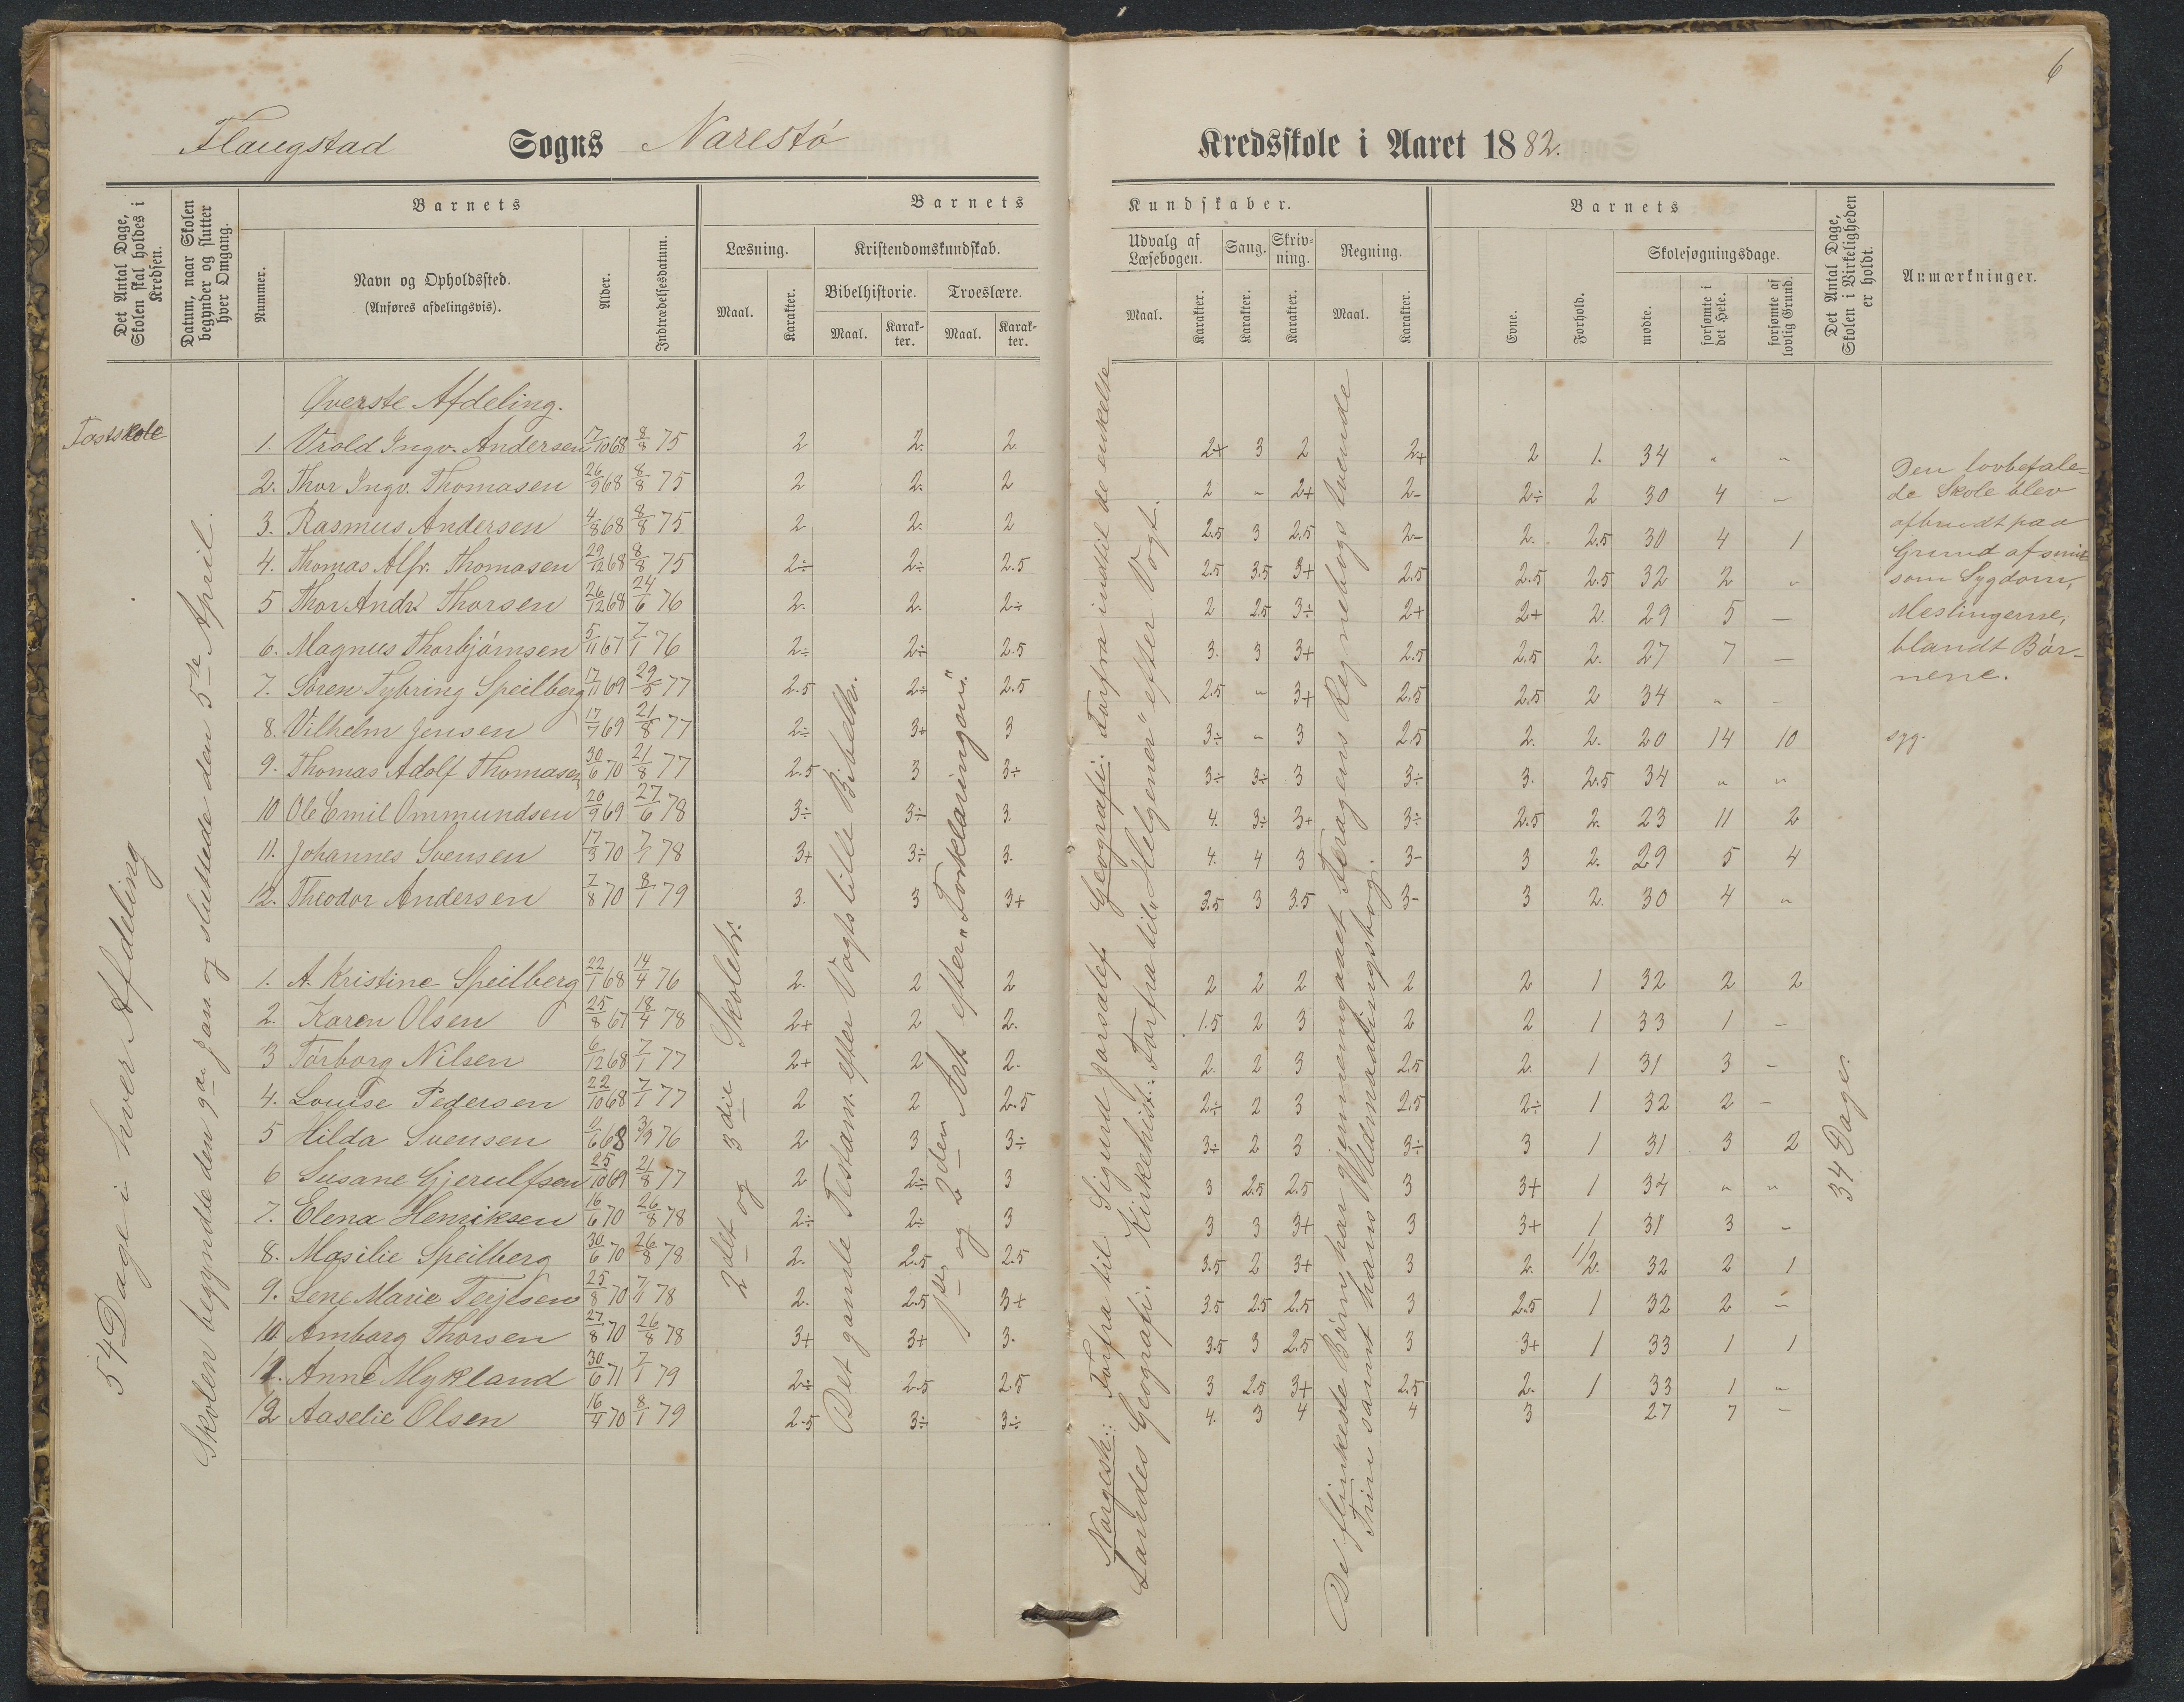 6
Flaugstad Sogns Narestö Kredsskole i Aaret 1882.
Det Antal Dage, Skolen skal holdes i Kredsen.
Datum, naar Skolen begynder og slutter hver Omgang.
Barnets
Nummer.
Navn og Opholdssted.
(Anføres afdelingsvis).
Alder.
Indtrædelsesdatum.
Barnets
Læsning.
Maal.
Karakter.
Kristendomskundskab.
Bibelhistorie.
Maal.
Karakter.
Troeslære.
Maal.
Karakter.
Kundskaber.
Udvalg af Læsebogen.
Maal.
Karakter.
Sang.
Karakter.
Skrivning.
Karakter.
Regning.
Maal.
Karakter.
Barnets
Evne.
Forhold.
Skolesøgningsdage.
mødte.
forsømte i det Hele.
forsømte af lovlig Grund.
Det Antal Dage, Skolen i Virkeligheden er holdt.
Anmærkninger.
Fastskole
54 Dage i hver Afdeling
Skolen begyndte den 9de Jan. og sluttede den 5te April.
Øverste Afdeling.
1. Vrold Ingv. Andersen 17/10 68 8/8 75 2 2. 2. 2+ 3 2 2+ 2 1. 34 " "
2. Thor Ingv. Thomasen 26/9 68 8/8 75 2 2. 2 2 - 2+ 2- 2÷ 2 30 4 -
3. Rasmus Andersen 4/8 68 8/8 75 2 2. 2 2.5 3 2.5 2- 2. 2.5 30 4 1
4. Thomas Alfr. Thomasen 29/12 68 8/8 75 2÷ 2÷ 2.5 2.5 3.5 3+ 2.5 2.5 2.5 32 2 "
5 Thor Andr. Thorsen 26/12 68 24/6 76 2. 2. 2÷ 2 2.5 3÷ 2+ 2+ 2. 29 5 -
6. Magnus Thorbjörnsen 5/11 67 7/1 76 2÷ 2÷ 2.5 3. 3 3+ 2.5 2.5 2. 27 7 -
7. Sören Tybring Speilberg 17/11 69 29/5 77 2.5 2÷ 2.5 2.5 " 3+ 2.5 2.5 2 34 " -
8. Vilhelm Jensen 17/7 69 21/8 77 2÷ 3+ 3 3÷ " 3 2.5 2. 2. 20 14 10 syg.
9. Thomas Adolf Thomasen 30/6 70 21/8 77 2.5 3 3÷ 3÷ 3÷ 3 3÷ 3. 2.5 34 " "
10 Ole Emil Ommundsen 20/9 69 27/6 78 3÷ 3÷ 3. 4. 3÷ 3+ 3÷ 2.5 2. 23 11 2
11. Johannes Svensen 17/3 70 7/1 78 3+ 3÷ 3. 4. 4 3 3- 3 2. 29 5 4
12. Theodor Andersen 7/8 70 8/1 79 3. 3 3+ 3.5 3 3.5 3- 3 2. 30 4 "
1. A. Kristine Speilberg 22/1 68 14/4 76 2. 2 2 2 2 2 2 2 1 32 2 2
2. Karen Olsen 25/8 67 18/4 78 2+ 2 2. 1.5 2 3 2 2 1 33 1 -
3 Törborg Nilsen 6/12 68 7/1 77 2+ 2 2. 2. 2 3 2.5 2. 1 31 3 -
4. Louise Pedersen 22/10 68 7/1 77 2 2 2.5 2÷ 2 3 2.5 2÷ 1 32 2 -
5 Hilda Svensen 2/6 68 3/3 76 2 3 3÷ 3÷ 2 3 3÷ 3 1 31 3 2
6 Susane Gjerulfsen 25/10 69 21/8 77 2 2÷ 3 3 2.5 2.5 3 3+ 1 34 " "
7. Elena Henriksen 16/6 70 26/8 78 2÷ 2÷ 3 3 3 3+ 3 3+ 1 31 3 -
8. Masilie Speilberg 30/6 70 26/8 78 2. 2.5 2.5 3.5 2 3+ 3 2. 1/2. 32 2 1
9. Lene Marie Terjesen 25/8 70 7/1 78 2. 2.5 3+ 3.5 2.5 2.5 3 2.5 1 32 2 -
10. Amborg Thorsen 27/8 70 26/8 78 3+ 3+ 3. 3.5 3 2.5 3 3+ 1 33 1 1
11. Anne Mykland 30/6 71 7/1 79 2÷ 2.5 2.5 3 2.5 3+ 2.5 2. 1 33 1 -
12 Aaselie Olsen 16/4 70 8/1 79 2.5 3÷ 3÷ 4. 3 4 4 3 27 7 -
2det og 3die Skoletr.
Det gamle Testam. efter Vogts lille Bibelh.
1ste og 2den Art. efter "Forklaringen".
Norgesh.: Forfra til Sigurd Jorsalef Geografi: Forfra indtil de enkelte
Landes Geografi. Kirkehist.: Forfra til "Helgener" efter Vogt.
De flinkeste Börn har gjennemgaaet Feragens Regnebogs tvende
Trin samt hans Udenaalingsbog.
34 Dage.
Den lovbefale-
de Skole blev
afbrudt paa
Grund af smit
som Sygdom,
Meslingerne,
blandt Bör-
nene.